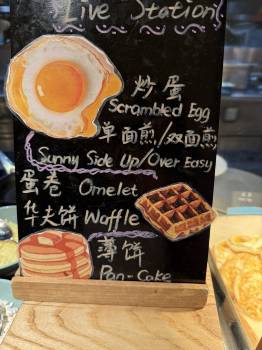 Live Station
炒蛋
Scrambled Egg
单面煎/双面煎
Sunny Side Up/Over Easy
蛋卷 Omelet
华夫饼 Waffle
薄饼
Pan-Cake